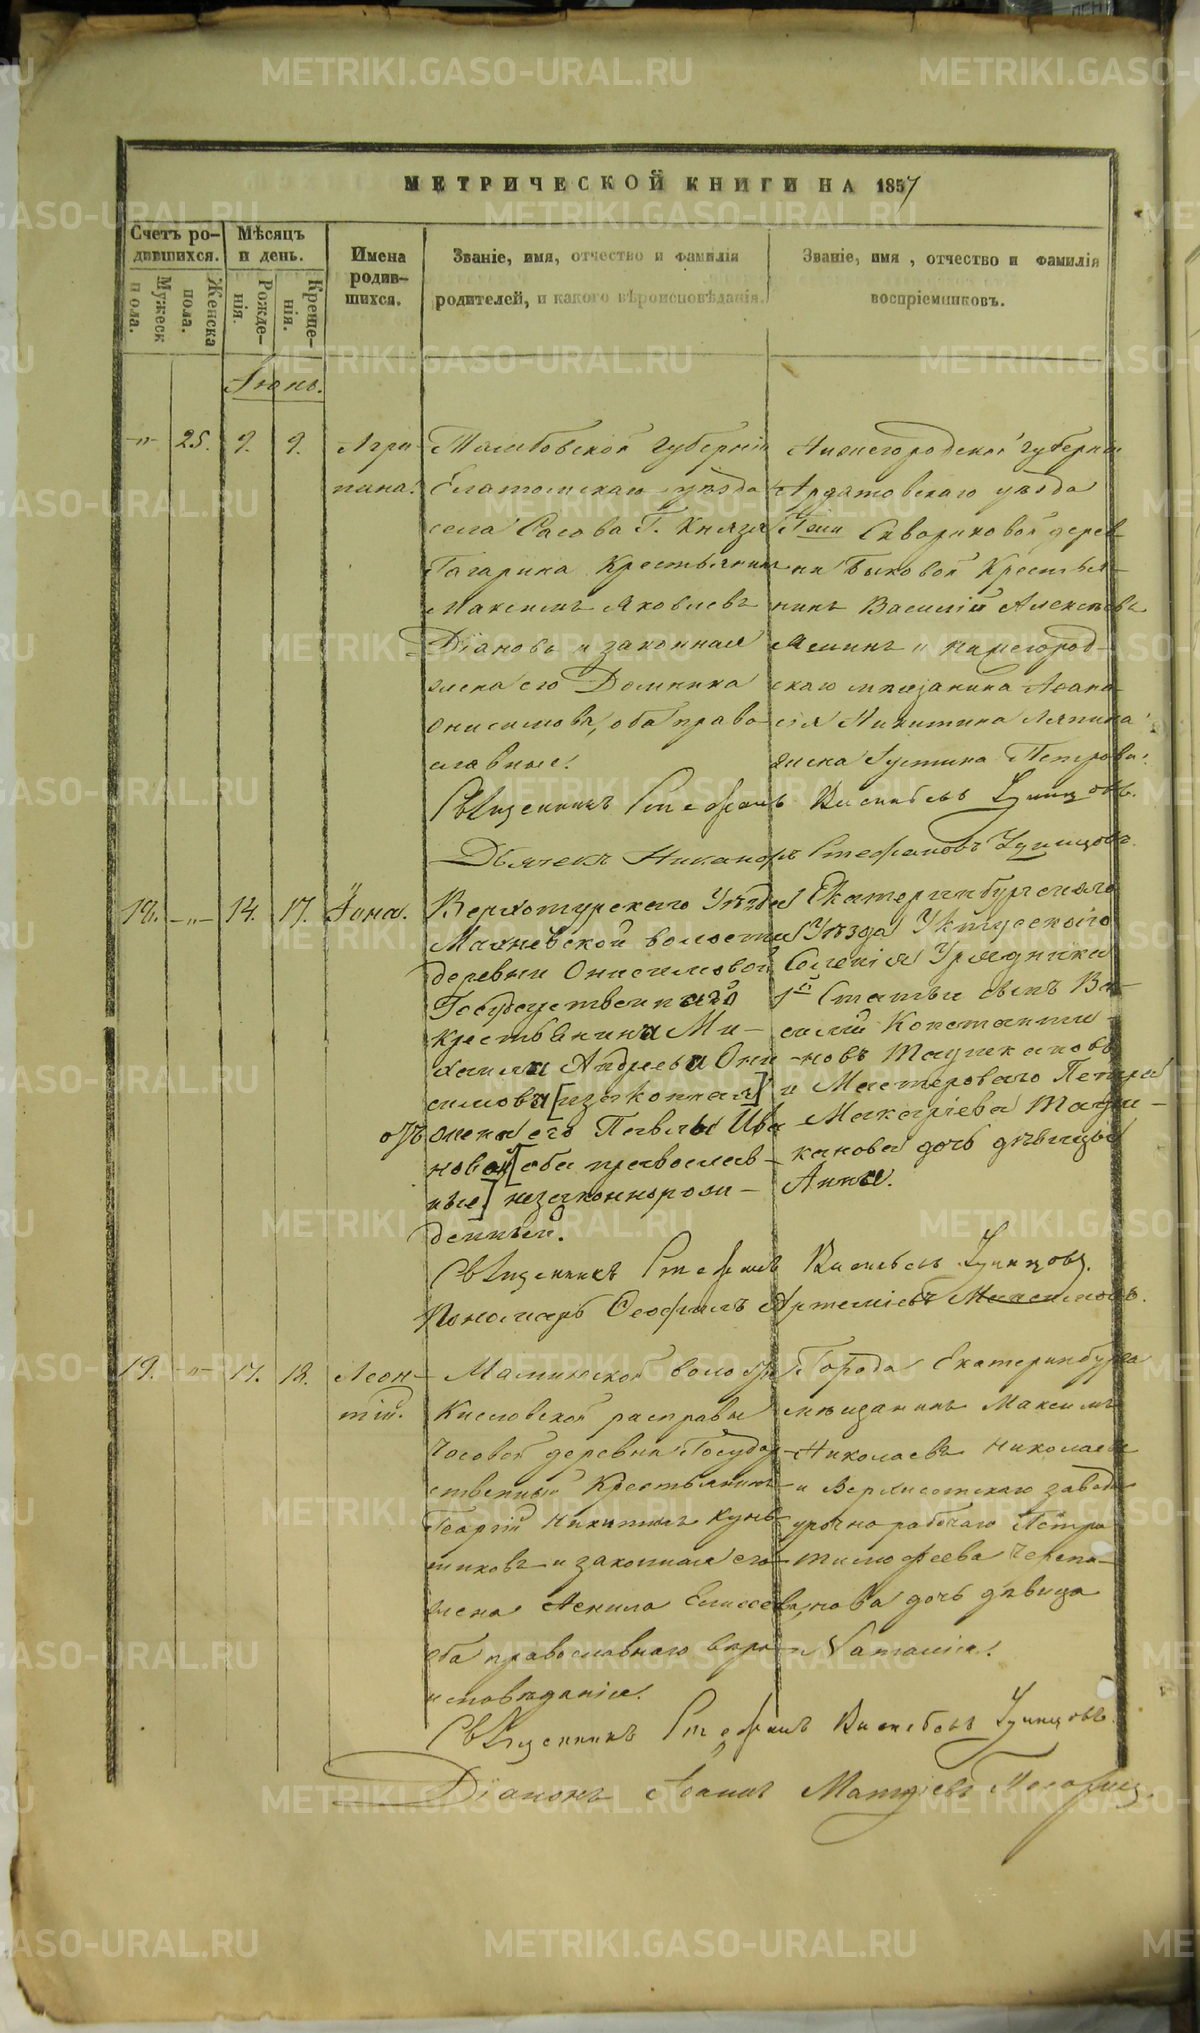 МЕТРИЧЕСКОЙ КНИГИ НА 1857
Счетъ родившихся.
Мѣсяцъ и день.
Имена родившихся.
Званіе, имя, отчество и фамилія родителей, и какого вѣроисповѣданія.
Званіе, имя, отчество и фамилія воспріемниковъ.
Мужеск пола.
Женска пола.
Рожденія.
Крещенія.
Іюнь.
-„- 25. 9. 9. Агрипина.
Тамбовской губерніи
Елатомскаго уѣзда
села Сасова Г. Князя
Гагарина Крестьянинъ
Максимъ Яковлевъ
Діановъ и законная
жена его Домника
Онисимова, оба православные.
Нижегородской губерніи
Ардатовскаго уѣзда
Сквориковой деревни Быковой Крестьянинъ Василій Алексѣевъ
и нижегородскаго мѣщанина Афанасія Никитина Ляпина
жена Іустина Петрова.
Священникъ Стефанъ Васильевъ Удинцовъ.
Дьячекъ Никаноръ Стефановъ Удинцовъ.
18. -„- 14. 17. Іона.
Верхотурскаго Уѣзда
Махневской волости
деревни Онисимовой
Государственнаго
крестьянина Михаила Андреева Онисимова [и законная]
жена его Павлы Ивановой [оба православные] незаконнорожденный.
Екатеринбургскаго
Уѣзда Уктусскаго
Селенія Урядника
1й Статьи сынъ Василій Константиновъ
и Мастероваго Петра
Макаріева
дочь дѣвица
Анна.
Священникъ Стефанъ Васильевъ Удинцовъ.
Пономарь Ѳеофилъ Артеміевъ
19. -„- 17. 18. Леонтій.
Маминской волости
Кисловской расправы
Часовой деревни Государственный Крестьянинъ
Георгій Никитинъ
и законная его
жена Ненила Елисеева,
оба православнаго вѣроисповѣданія.
Города Екатеринбурга
мѣщанинъ Максимъ
Николаевъ Николаевъ
и Верхисетскаго завода
урочнорабочаго Петра
Тимофеева Черепанова дочь дѣвица
Наталія.
Священникъ Стефанъ Васильевъ Удинцовъ.
Діаконъ Іоаннъ Матѳіевъ
METRIKI.GASO-URAL.RU